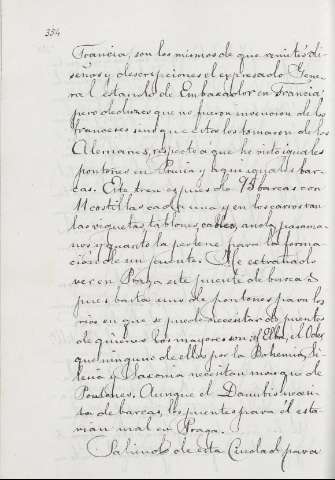 334
Francia, son los mismos de que remite di-
seños y descripciones el expresado Gene-
ral estando de Embaxador en Francia;
pero deduzco que no fueron invencion de los
franceses sino que estos los tomaron de los
Alemanes, respecto a que he visto iguales
pontones en Prusia y aqui iguales bar-
cas. Este tren es pues de 95 barcas con
costillas cada una y en los carros van
las viguetas, tablones, cables, ancla, pasama-
nos y quanto le pertene para la forma-
cion de un puente. Me ha extrañado
ver en Praga este puente de barcas
pues basta uno de pontones para los
rios en que se puede necesitar de puentes
de quienes los mayores son el Elba, el Oder
que ninguno de ellos por la Bohemia, Si-
lesia y Saxonia necesitan mas que de
Pontones. Aunque el Danubio necesi-
ta de barcas, los puentes para el esta-
rian mal en Praga.
Saliendo de esta Ciudad para